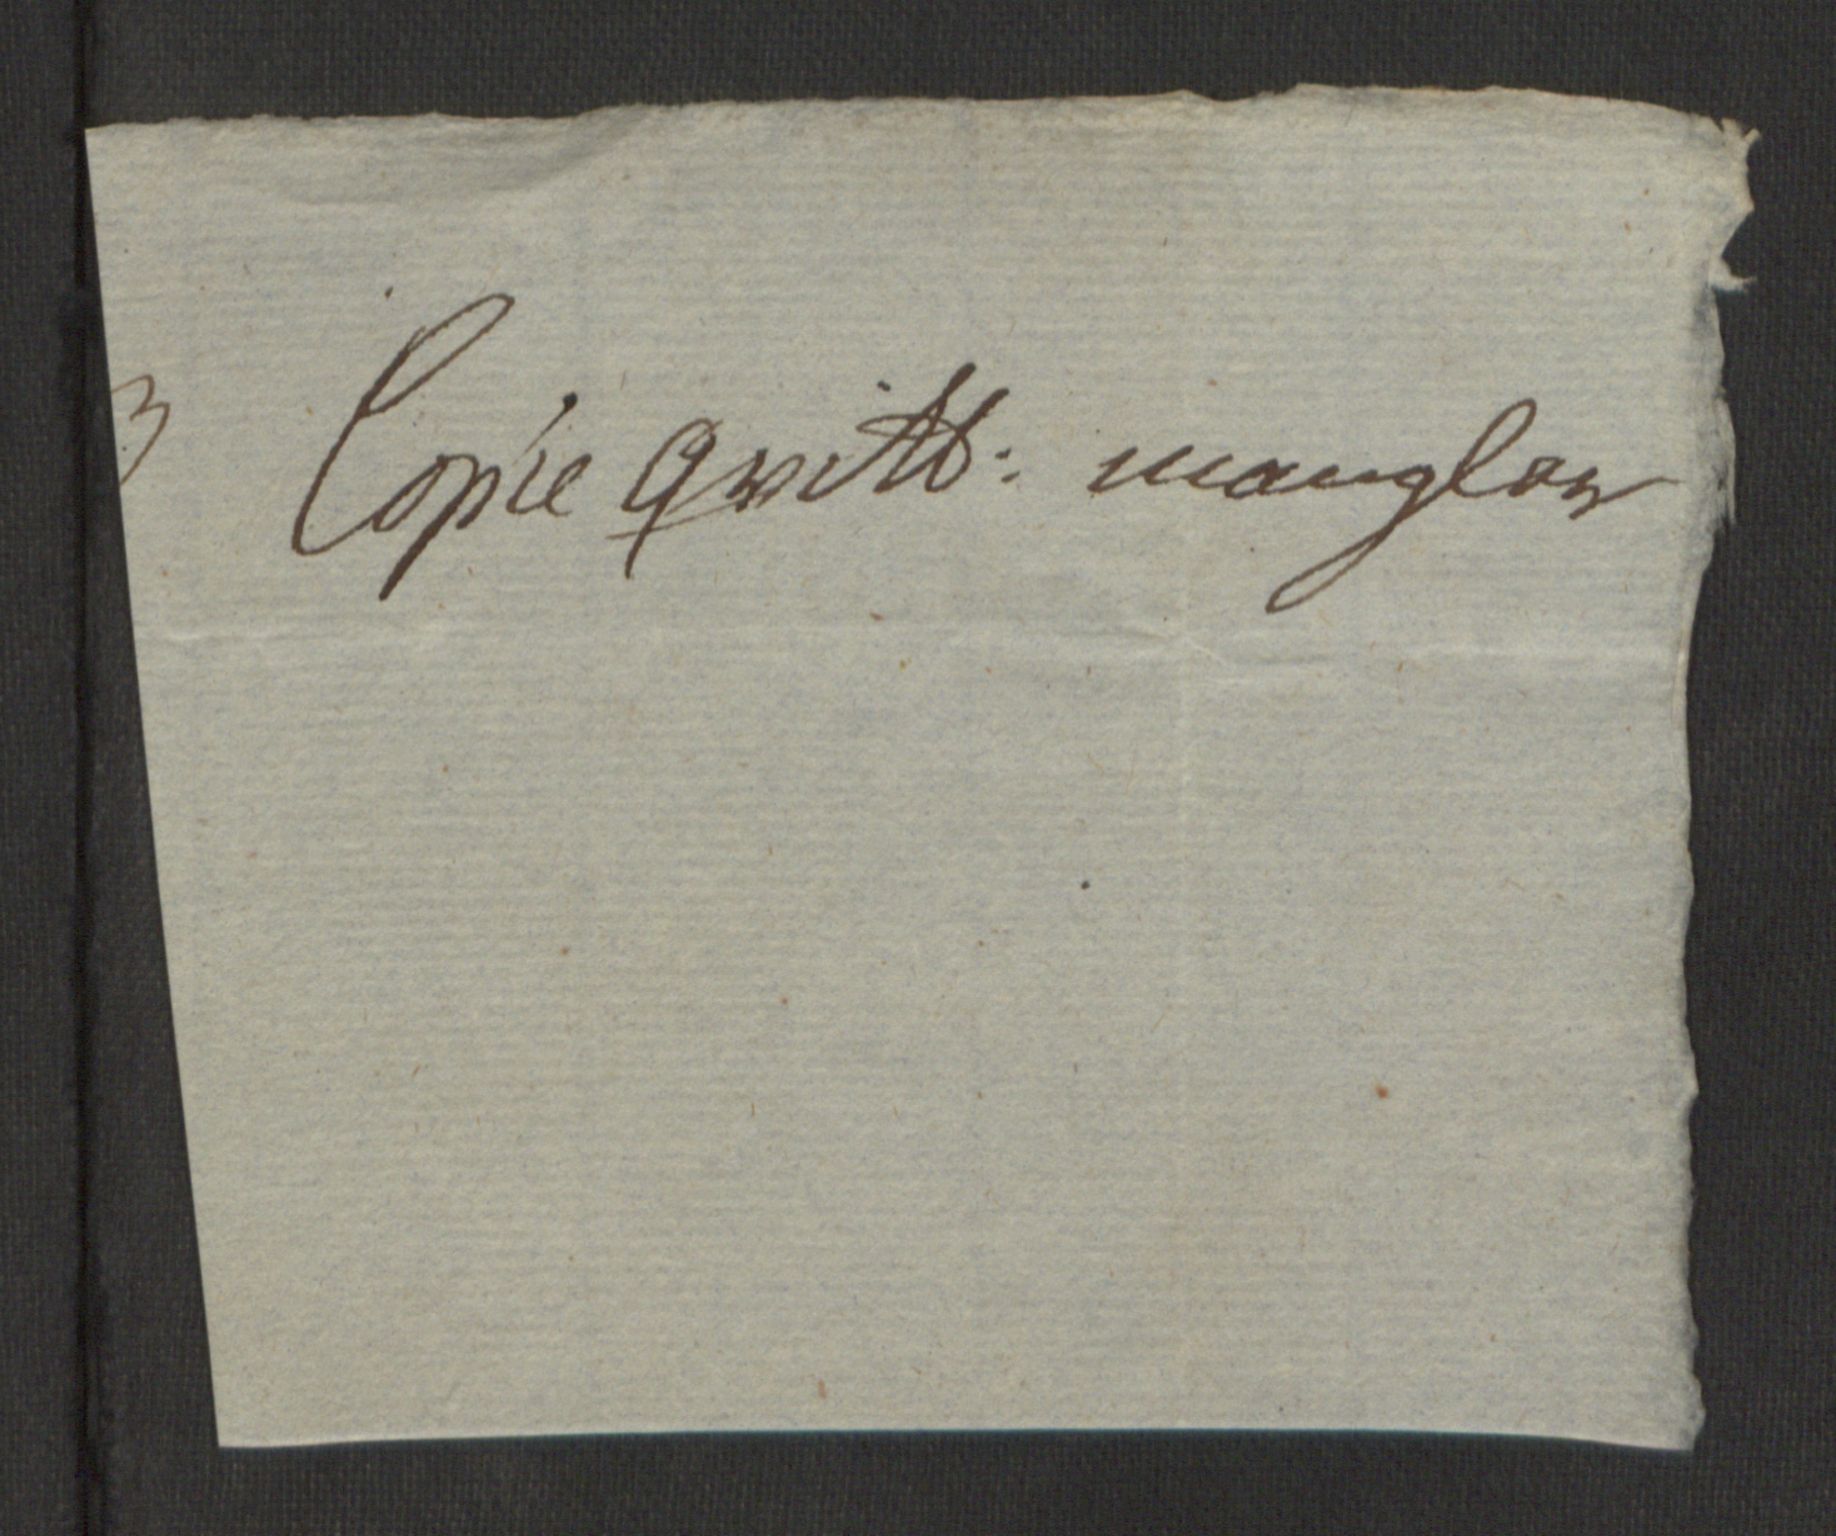 Copie Qvitt: mangler